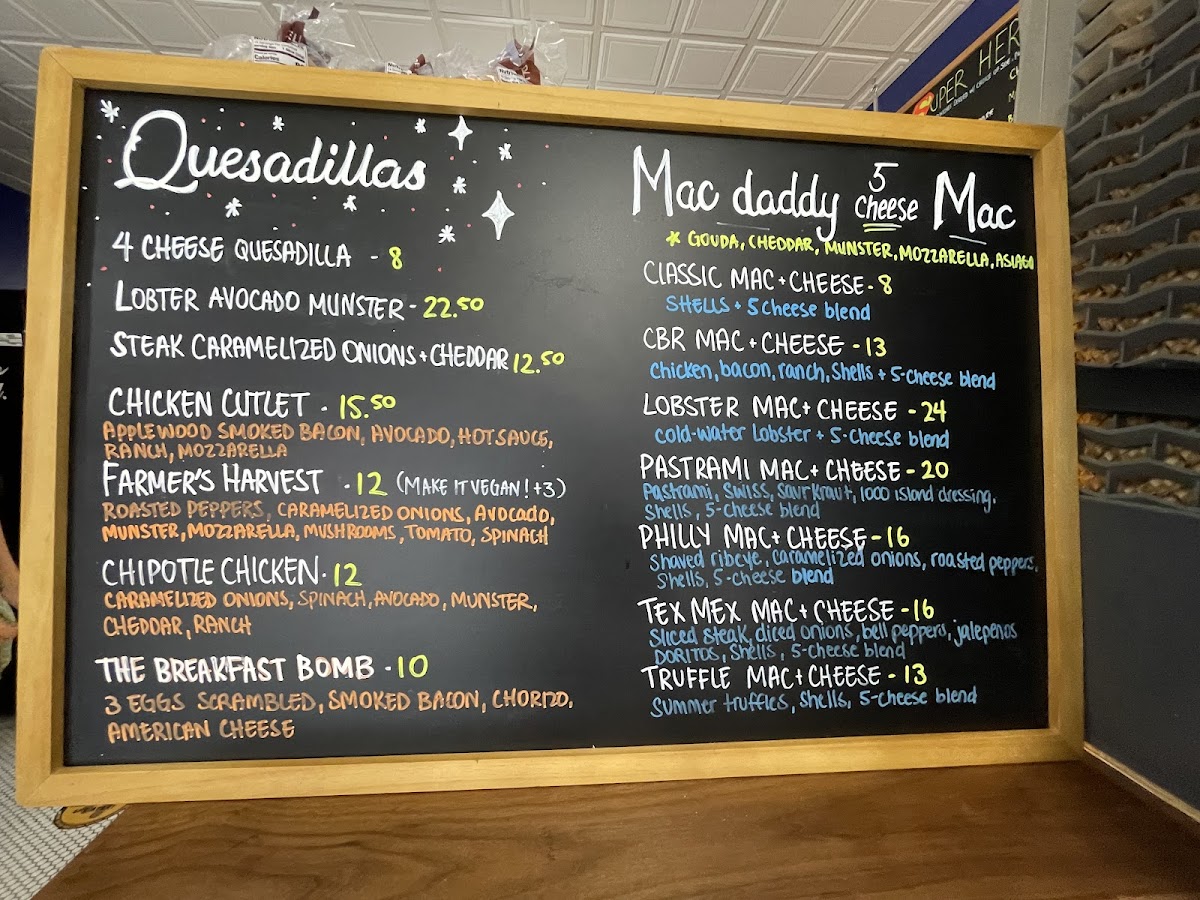 Quesadillas
4 CHEESE QUESADILLA - 8
LOBTER AVOCADO MUNSTER - 22.50
STEAK CARAMELIZED ONIONS + CHEDDAR 12.50
CHICKEN CUTLET - 15.50
APPLEWOOD SMOKED BACON, AVOCADO, HOT SAUCE,
RANCH, MOZZARELLA
FARMER'S HARVEST - 12 (MAKE IT VEGAN! +3)
ROASTED PEPPERS, CARAMELIZED ONIONS, AVOCADO,
MUNSTER, MOZZARELLA, MUSHROOMS, TOMATO, SPINACH
CHIPOTLE CHICKEN - 12
CARAMELIZED ONIONS, SPINACH, AVOCADO, MUNSTER,
CHEDDAR, RANCH
THE BREAKFAST BOMB - 10
3 EGGS SCRAMBLED, SMOKED BACON, CHORIZO,
AMERICAN CHEESE
Mac daddy 5 cheese Mac
* GOUDA, CHEDDAR, MUNSTER, MOZZARELLA, ASIAGO
CLASSIC MAC + CHEESE - 8
SHELLS + 5 Cheese blend
CBR MAC + CHEESE - 13
Chicken, bacon, ranch, Shells + 5-Cheese blend
LOBSTER MAC + CHEESE - 24
cold-water lobster + 5-Cheese blend
PASTRAMI MAC + CHEESE - 20
Pastrami, Swiss, Saurkraut, 1000 island dressing,
Shells, 5-cheese blend
PHILLY MAC + CHEESE - 16
Shaved ribeye, Caramelized onions, roasted peppers,
Shells, 5-cheese blend
TEX MEX MAC + CHEESE - 16
Sliced steak, diced onions, bell peppers, jalepenos
DORITOS, Shells, 5-cheese blend
TRUFFLE MAC + CHEESE - 13
Summer truffles, Shells, 5-Cheese blend
SUPER HER